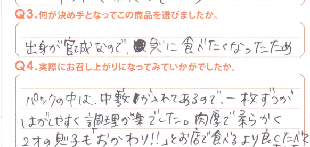 Q3.何が決め手となってこの商品を選びましたか。
出身が宮城なので、急に食べたくなったため
Q4.実際にお召し上がりになってみていかがでしたか。
パックの中は、中敷が入れてあるので、一枚ずつが
はがしやすく調理が楽でした。肉厚で柔らかく
2才の息子も「おかわり!!」とお店で食べるより